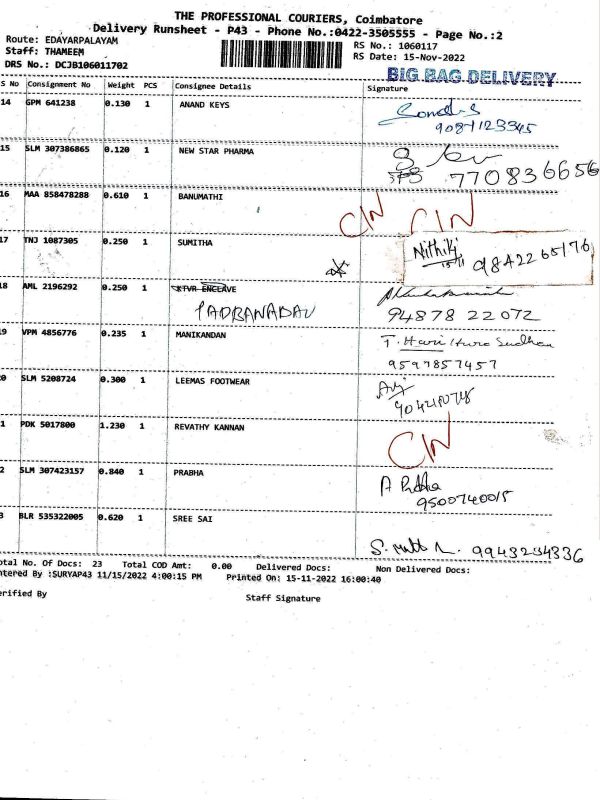 THE PROFESSIONAL COURIERS, Coimbatore
Delivery Runsheet - P43 - Phone No.:0422-3505555 - Page No.:2
Route: EDAYARPALAYAM
RS No.: 1060117
Staff: THAMEEM
RS Date: 15-Nov-2022
DRS No.: DCJB106011702
BIG BAG DELIVERY
S No Consignment No Weight PCS Consignee Details Signature
14 GPM 641238 0.130 1 ANAND KEYS
15 SLM 307386865 0.120 1 NEW STAR PHARMA
770836656
16 MAA 858478288 0.610 1 BANUMATHI
CIN CIN
17 TNJ 1087305 0.250 1 SUMITHA
Nithik
15/11
9842265176
18 AML 2196292 0.250 1 KTVR ENCLAVE
94878 22072
19 VPM 4856776 0.235 1 MANIKANDAN
T. Hari Hara Sudhan
9597857457
0 SLM 5208724 0.300 1 LEEMAS FOOTWEAR
1 PDK 5017800 1.230 1 REVATHY KANNAN
CIN
2 SLM 307423157 0.840 1 PRABHA
9500740015
3 BLR 535322005 0.620 1 SREE SAI
9943234336
otal No. Of Docs: 23 Total COD Amt: 0.00 Delivered Docs: Non Delivered Docs:
ntered By :SURYAP43 11/15/2022 4:00:15 PM Printed On: 15-11-2022 16:00:40
erified By Staff Signature